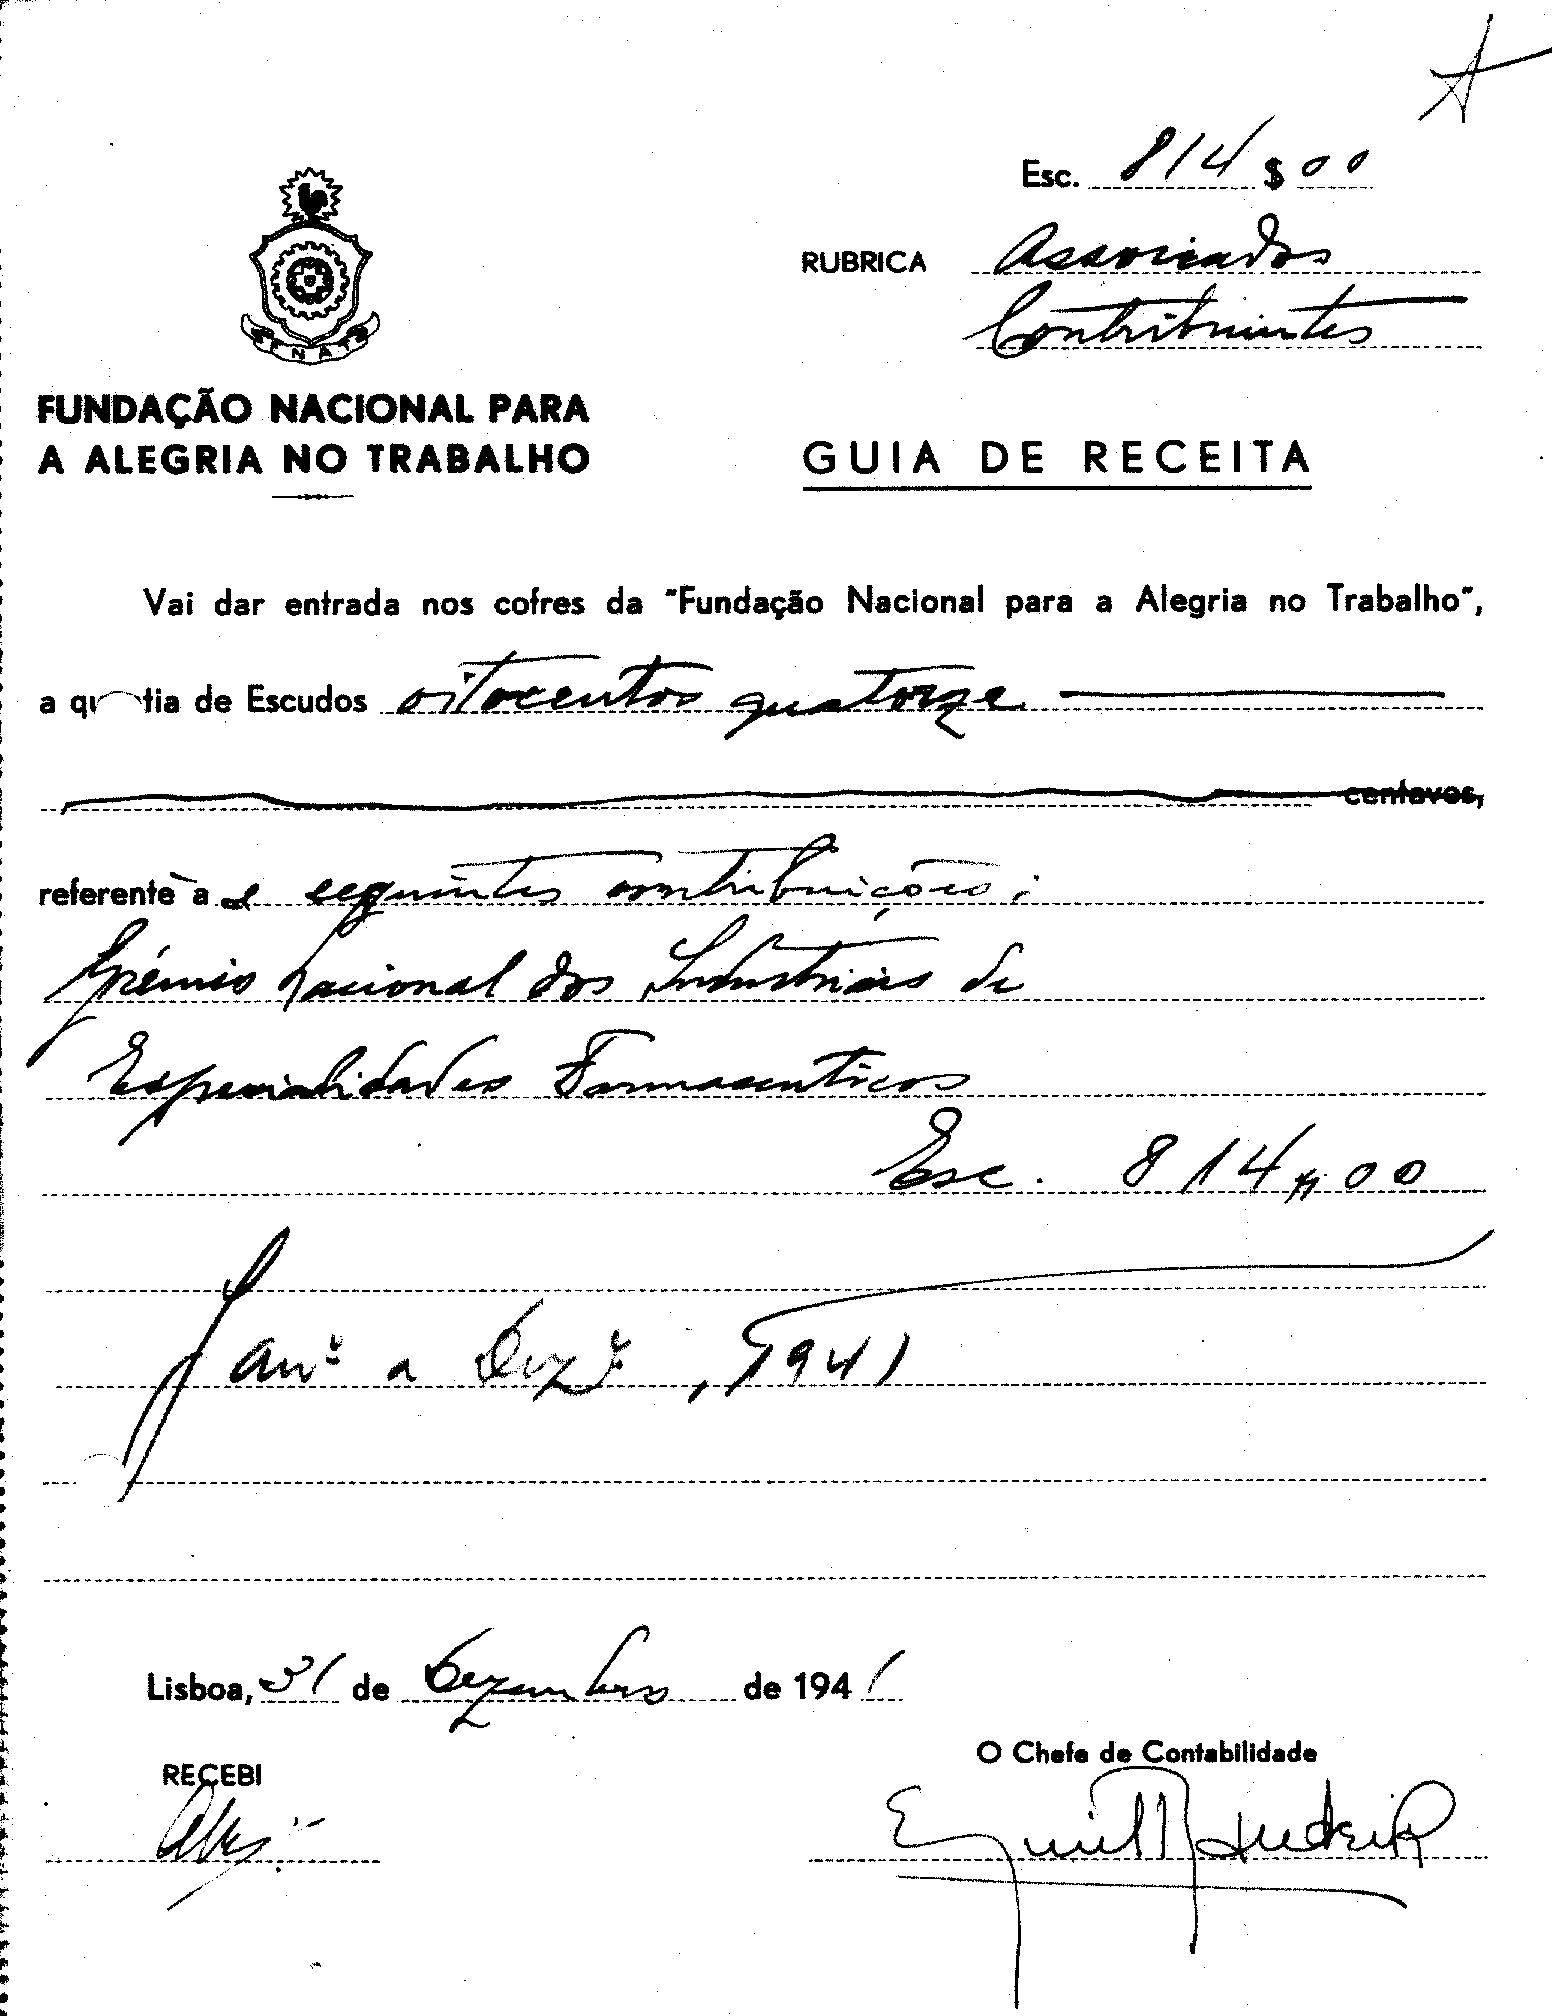 Esc. 814 $ 00
RUBRICA Associados
Contribuintes
FNAT
FUNDAÇÃO NACIONAL PARA
A ALEGRIA NO TRABALHO
GUIA DE RECEITA
Vai dar entrada nos cofres da "Fundação Nacional para a Alegria no Trabalho",
a quantia de Escudos oitocentos quatorze
centavos,
referente a seguintes contribuições:
Grémio Nacional dos Industriais de
Especialidades Farmaceuticos
Esc. 814$00
Janº a Dezº, 1941
Lisboa, 31 de Dezembro de 1941
RECEBI
O Chefe de Contabilidade